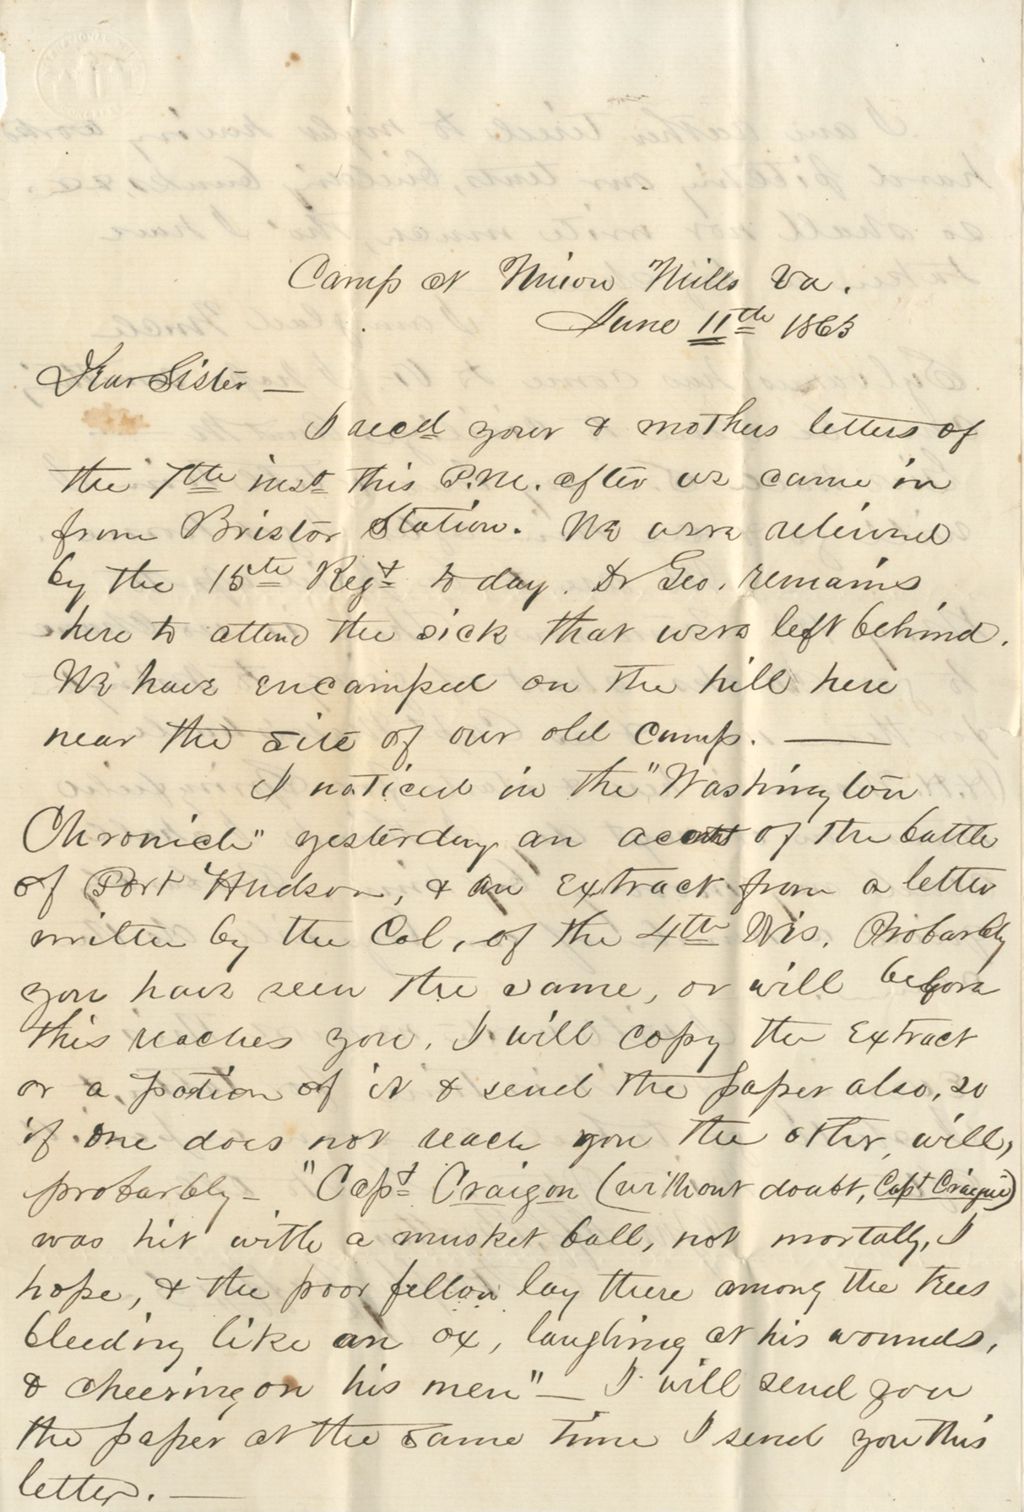 Camp at Union Mills Va.
June 11th 1863
Dear Sister —
I recd your & mothers letters of
the 7th inst this P.M. after we came in
from Bristor Station. We were relieived
by the 15th Regt to day. Dr Geo. remains
here to attend the sick that were left behind.
We have encamped on the hill here
near the site of our old camp. —
I noticed in the "Washington
Chronicle" yesterday an acount of the battle
of Port Hudson, & an extract from a letter
written by the Col, of the 4th Wis. Probarbly
you have seen the same, or will before
this reaches you. I will copy the extract
or a potion of it & send the paper also, so
if one does not reach you the other will,
probarbly — "Capt Craigon (without doubt, Capt Craigue)
was hit with a musket ball, not mortally, I
hope, & the poor fellow lay there among the trees
bleeding like an ox, laughing at his wounds,
& cheering on his men" — I will send you
the paper at the same time I send you this
letter. —